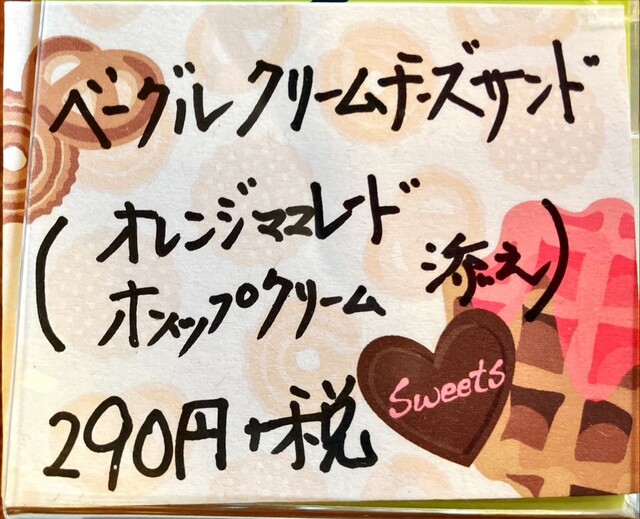 ベーグルクリームチーズサンド
(オレンジママレード
ホイップクリーム 添え)
Sweets
290円+税